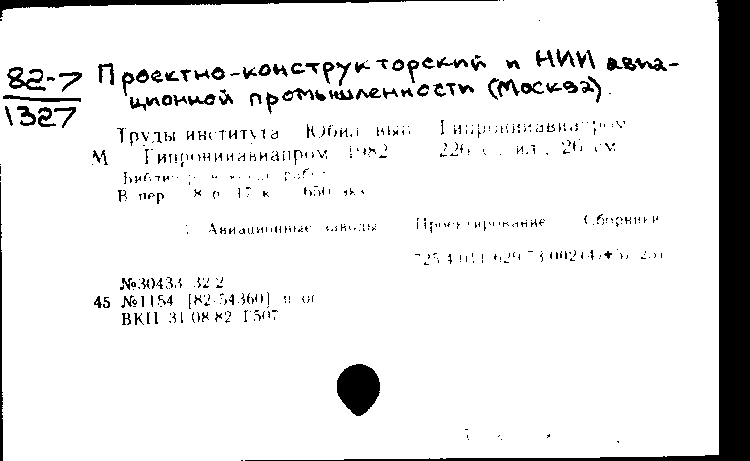 82-7
1327
Проектно-конструкторский и НИИ авиа-
ционной промышленности (Москва).
Труды института Юбил. вып. Гипронииавиапром
М Гипронииавиапром 1982 226 с. ил. 26 см
Библиогр. работ
В пер. 8 р. 17 к. 650 экз.
Авиационные заводы Проектирование Сборники
№30433 32 2
45 №1154 [82-54360]
ВКП 31 08 82 Г507